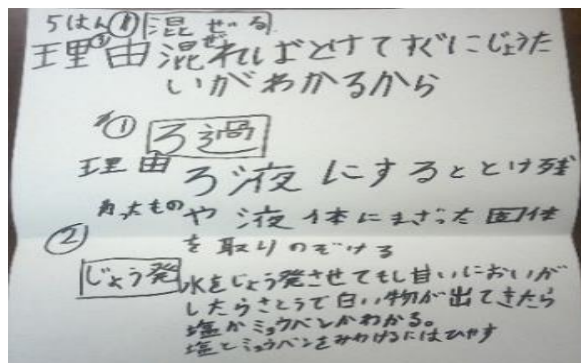 5はん① 混ぜる
理由 混ればとけてすぐにじょうた
いがわかるから
① ろ過
理由 ろ液にするととけ残
ったものや液体にまざった固体
② を取りのぞける
じょう発 水をじょう発させてもし甘いにおいが
したらさとうで白い物が出てきたら
塩かミョウバンかわかる。
塩とミョウバンをみわけるにはひやす